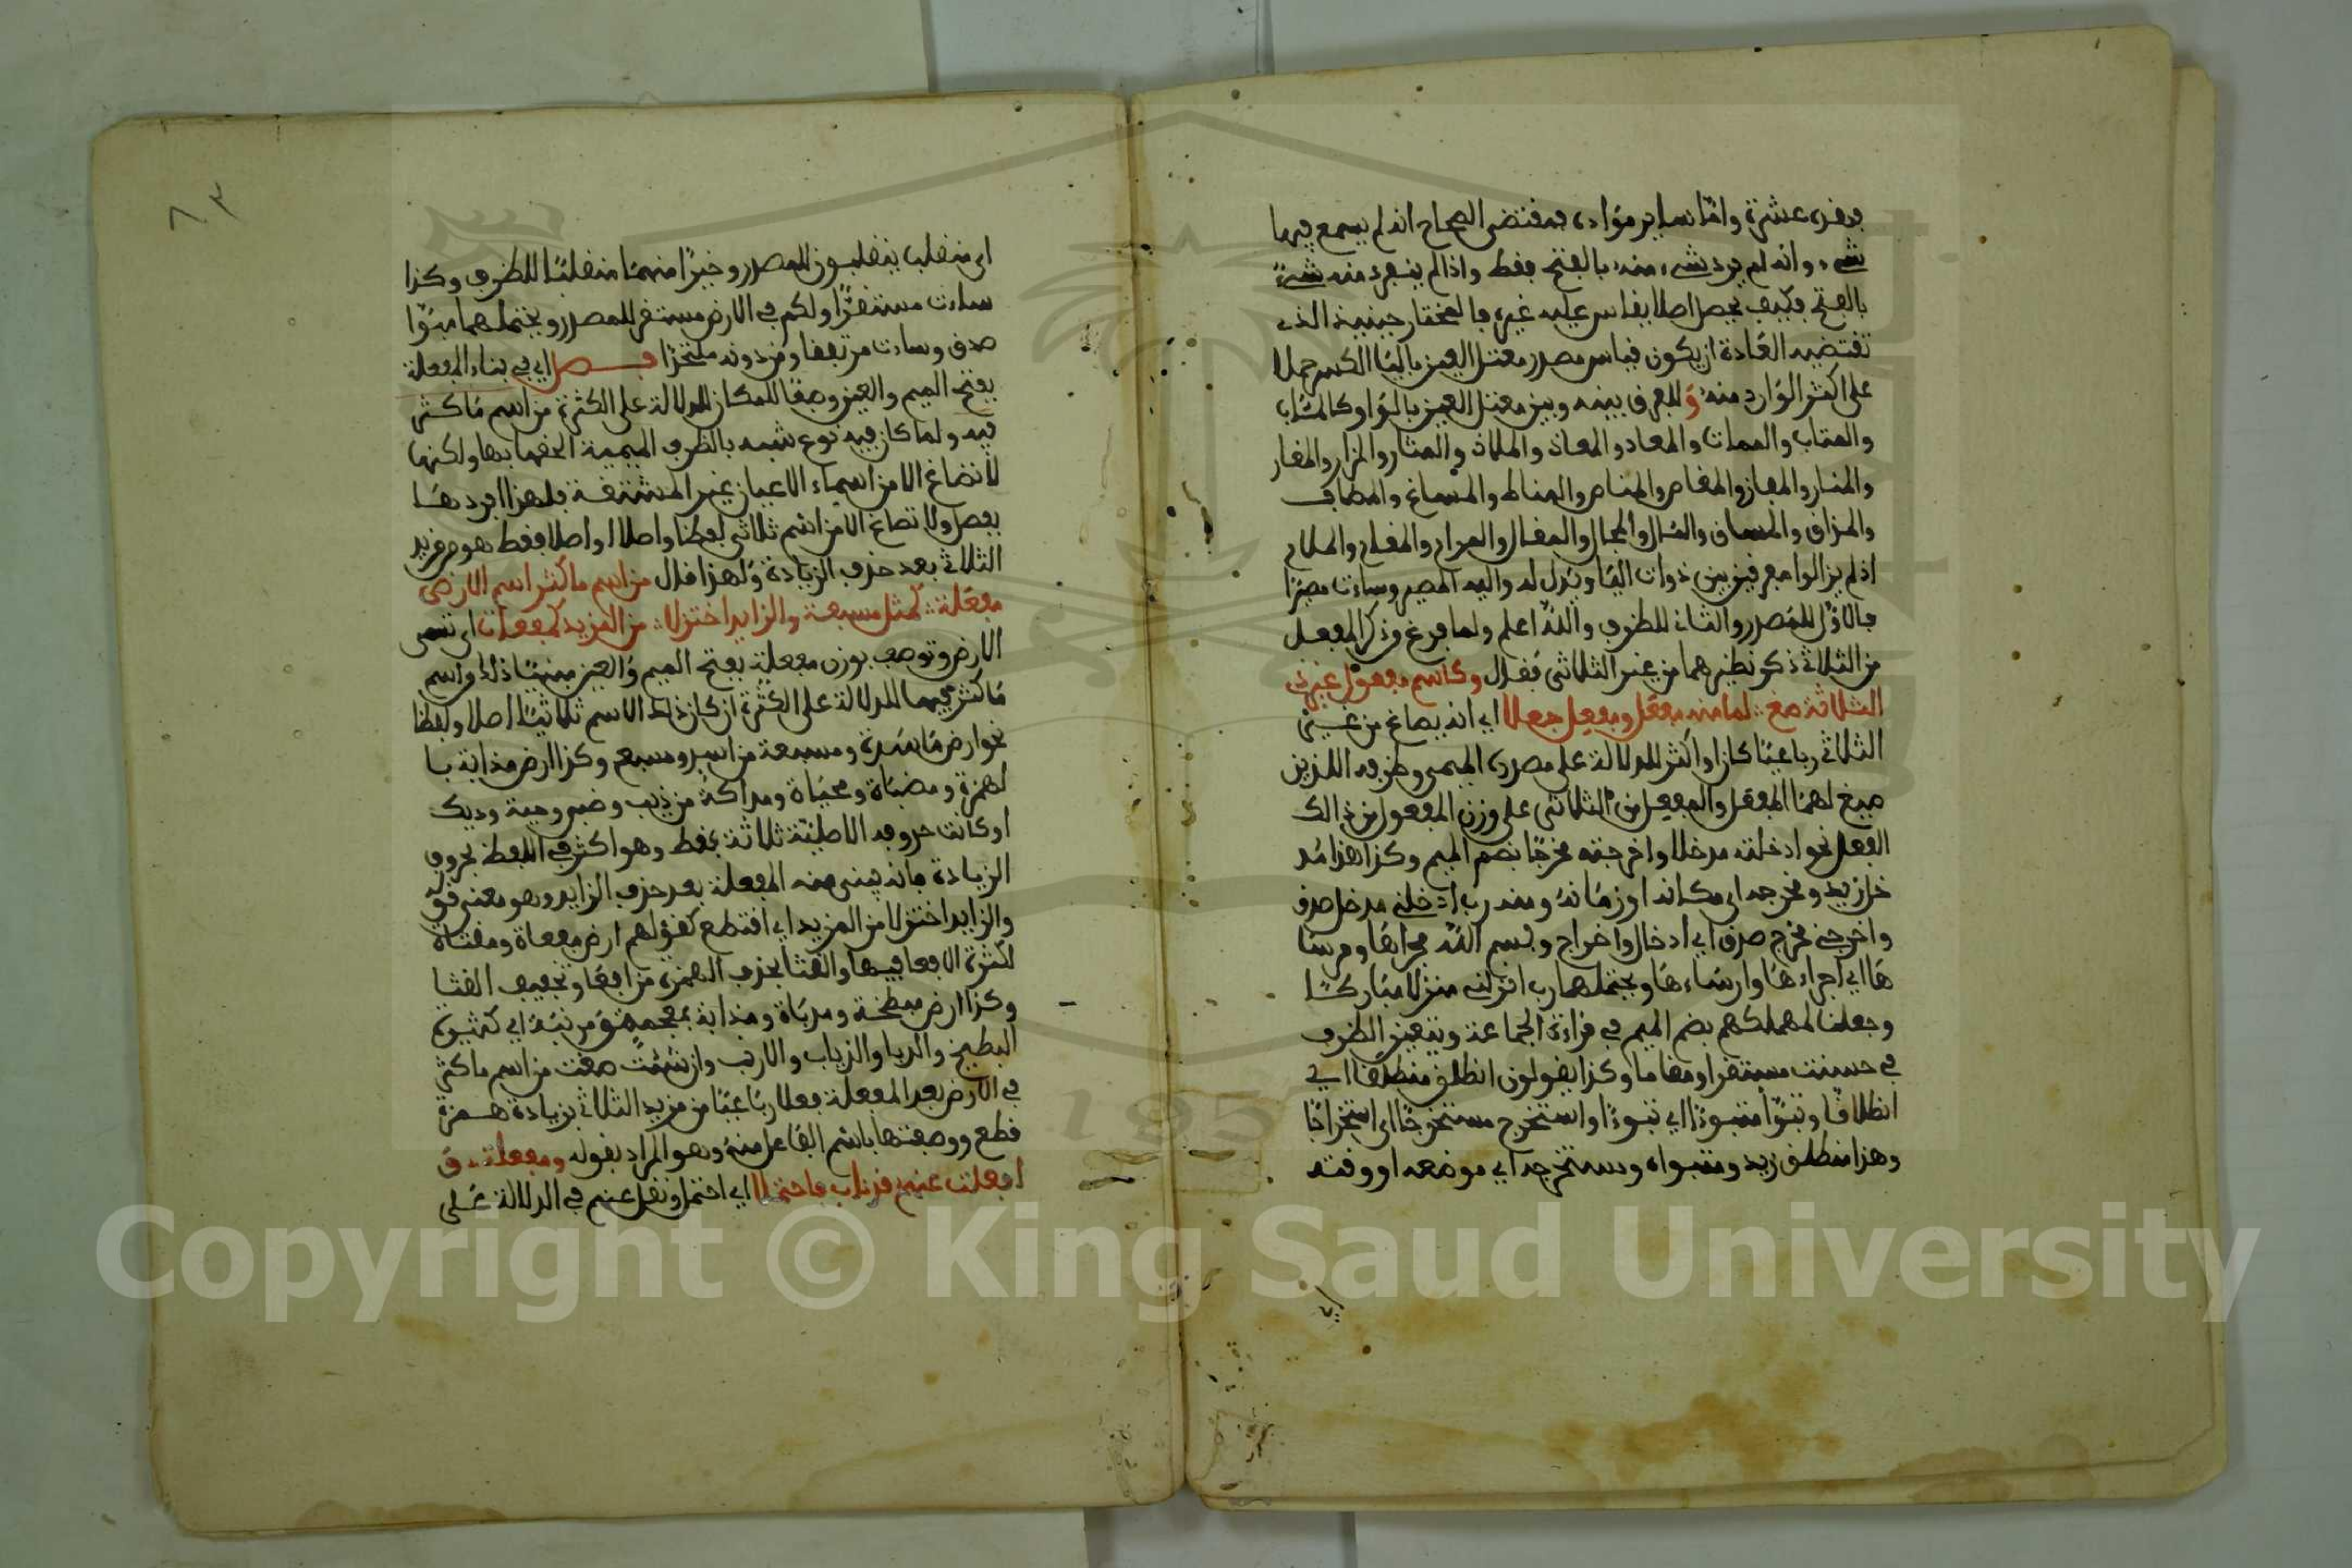 وفرعشرة واما ساير مواده فمقتضى الصحاح انه لم يسمع فيها
شيء وانه لم يرد شيء منه بالفتح فقط واذا لم ينفرد منه شيء
بالفتح فكيف يجعل اصلا يقاس عليه غيره فالمختار حينئذ الذي
تقتضيه العادة ان يكون قياس مصدر معتل العين بالياء الكسر حملا
على اكثر الوارد منه وللفرق بينه وبين معتل العين بالواو كالمئاب
والمتاب والممات والمعاد والمعاذ والملاذ والمثار والمزار والمغار
والمنار والمفاز والمغاص والمناص والمناط والمساغ والمطاف
والمذاق والمساق والمئال والمجال والمقال والمرام والمقام والملام
اذ لم يزالوا مفرقين بين ذوات الياء ويدل له واليه المصير وساءت مصيرا
فالاول للمصدر والثاني للظرف والله اعلم ولما فرغ من ذكر المفعل
من الثلاثي ذكر نظيرهما من غير الثلاثي فقال وكاسم مفعول غير ذي
الثلاثة صغ لما منه مفعل ومفعل جعلا اي انه يصاغ من غير
الثلاثي رباعيا كان او اكثر للدلالة على مصدره الميمي وظرفه اللذين
صيغ لهما المفعل والمفعل من الثلاثي على وزن المفعول من ذالك
الفعل نحو ادخلته مدخلا واخرجته مخرجا بضم الميم وكذا هذا مد
خل زيد ومخرجه اي مكانه او زمانه ومنه رب ادخلني مدخل صدق
واخرجني مخرج صدق اي ادخال واخراج وبسم الله مجراها ومرسا
ها اي اجراءها وارساءها ويحتملهما رب انزلني منزلا مباركا
وجعلنا لمهلكهم بضم الميم في قراءة الجماعة ويتعين الظرف
في حسنت مستقرا ومقاما وكذا يقولون انطلق منطلقا اي
انطلاقا وتبوأ متبوءا اي تبوءا واستخرج مستخرجا اي استخراجا
وهذا منطلق زيد ومتبوأه ومستخرجه اي موضعه او وقته
٨٣
اي منقلب ينقلبون للمصدر وخيرا منهما منقلبا للظرف وكذا
ساءت مستقرا ولكم في الارض مستقر للمصدر ويحتملهما مبوأ
صدق وساءت مرتفقا ومن دونه ملتحدا فصل اي في بناء المفعلة
بفتح الميم والعين وصفا للمكان للدلالة على الكثرة من اسم ما كثر
فيه ولما كان فيه نوع شبه بالظرف الميمية الحقها بها ولكنها
لا تصاغ الا من اسماء الاعيان غير المشتقة فلهذا افردها
بفصل ولا تصاغ الا من اسم ثلاثي لفظا واصلا او اصلا فقط هو مزيد
الثلاثي بعد حذف الزيادة ولهذا قال من اسم ما كثر اسم الارض
مفعلة كمثل مسبعة والزايد اختزلا من المزيد كمفعاة اي تسمى
الارض وتوصف بوزن مفعلة بفتح الميم والعين مبنيا ذلك من اسم
ما كثر فيها للدلالة على الكثرة ان كان ذلك الاسم ثلاثيا اصلا ولفظا
نحو ارض مأسدة ومسبعة من اسد وسبع وكذا ارض مذابة با
لهمزة ومضباة ومحياة ومداكة من ذيب وضب وحية وديك
او كانت حروفه الاصلية ثلاثة فقط وهو اكثر في اللفظ بحروف
الزيادة فانه يبنى منه المفعلة بعد حذف الزايد وهو معنى قوله
والزايد اختزلا من المزيد اي اقتطع كقولهم ارض مفعاة ومقثاة
لكثرة الافعا فيها والقثا بحذف الهمزة من افعا وتخفيف القثا
وكذا ارض مبطخة ومدباة ومذابة بمعجمة ومرنبة اي كثيرة
البطيخ والدبا والذباب والارنب وان شئت صغت من اسم ما كثر
في الارض بعد المفعلة فعلا رباعيا من مزيد الثلاثي بزيادة همزة
قطع ووصفتها باسم الفاعل منه وهو المراد بقوله ومفعلة و
افعلت عنهم قد ناب فاحتملا اي احتمل ونقل عنهم في الدلالة على
Copyright © King Saud University